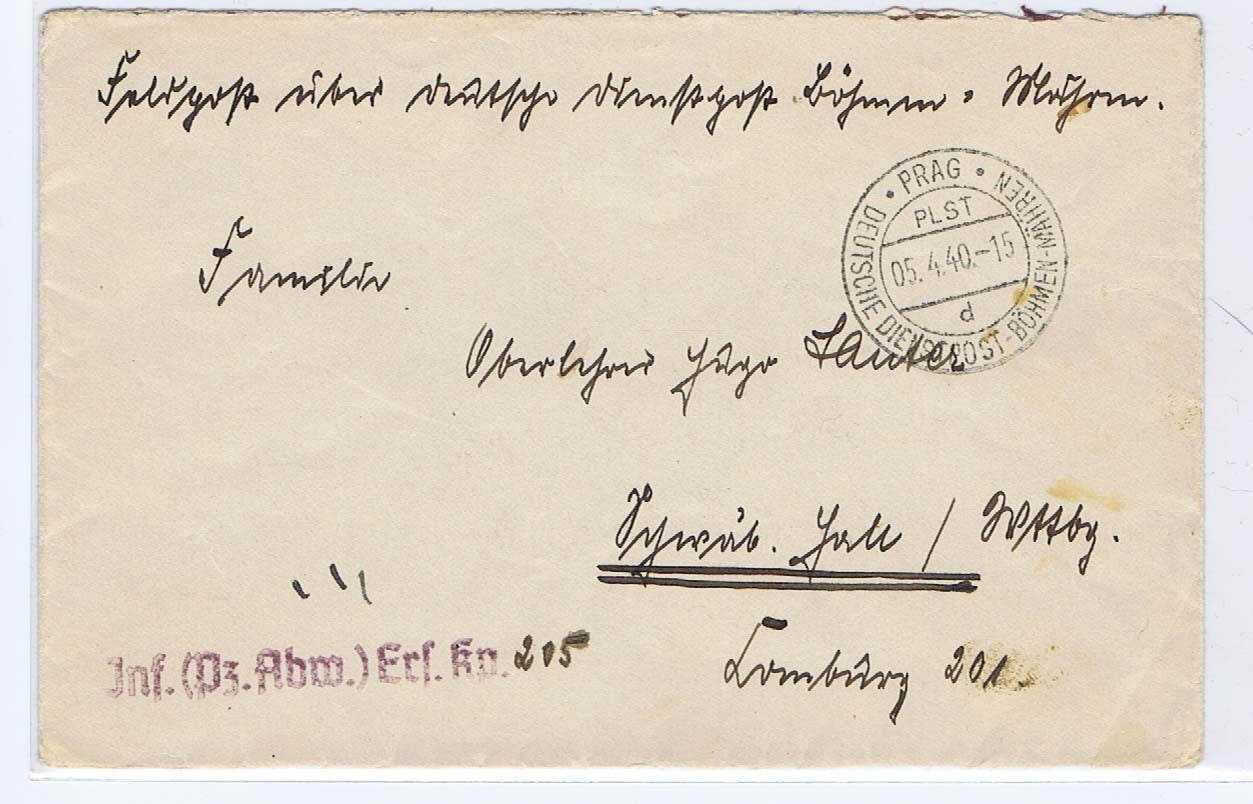 Feldpost über deutsche Dienstpost Böhmen = Mähren.
PRAG
PLST
05.4.40.-15
d
DEUTSCHE DIENSTPOST-BÖHMEN-MÄHREN
Familie
Oberlehrer Hugo Lauter
Schwäb. Hall / Wttbg.
Inf. (Pz. Abw.) Ers. Kp. 205
Comburg 201.